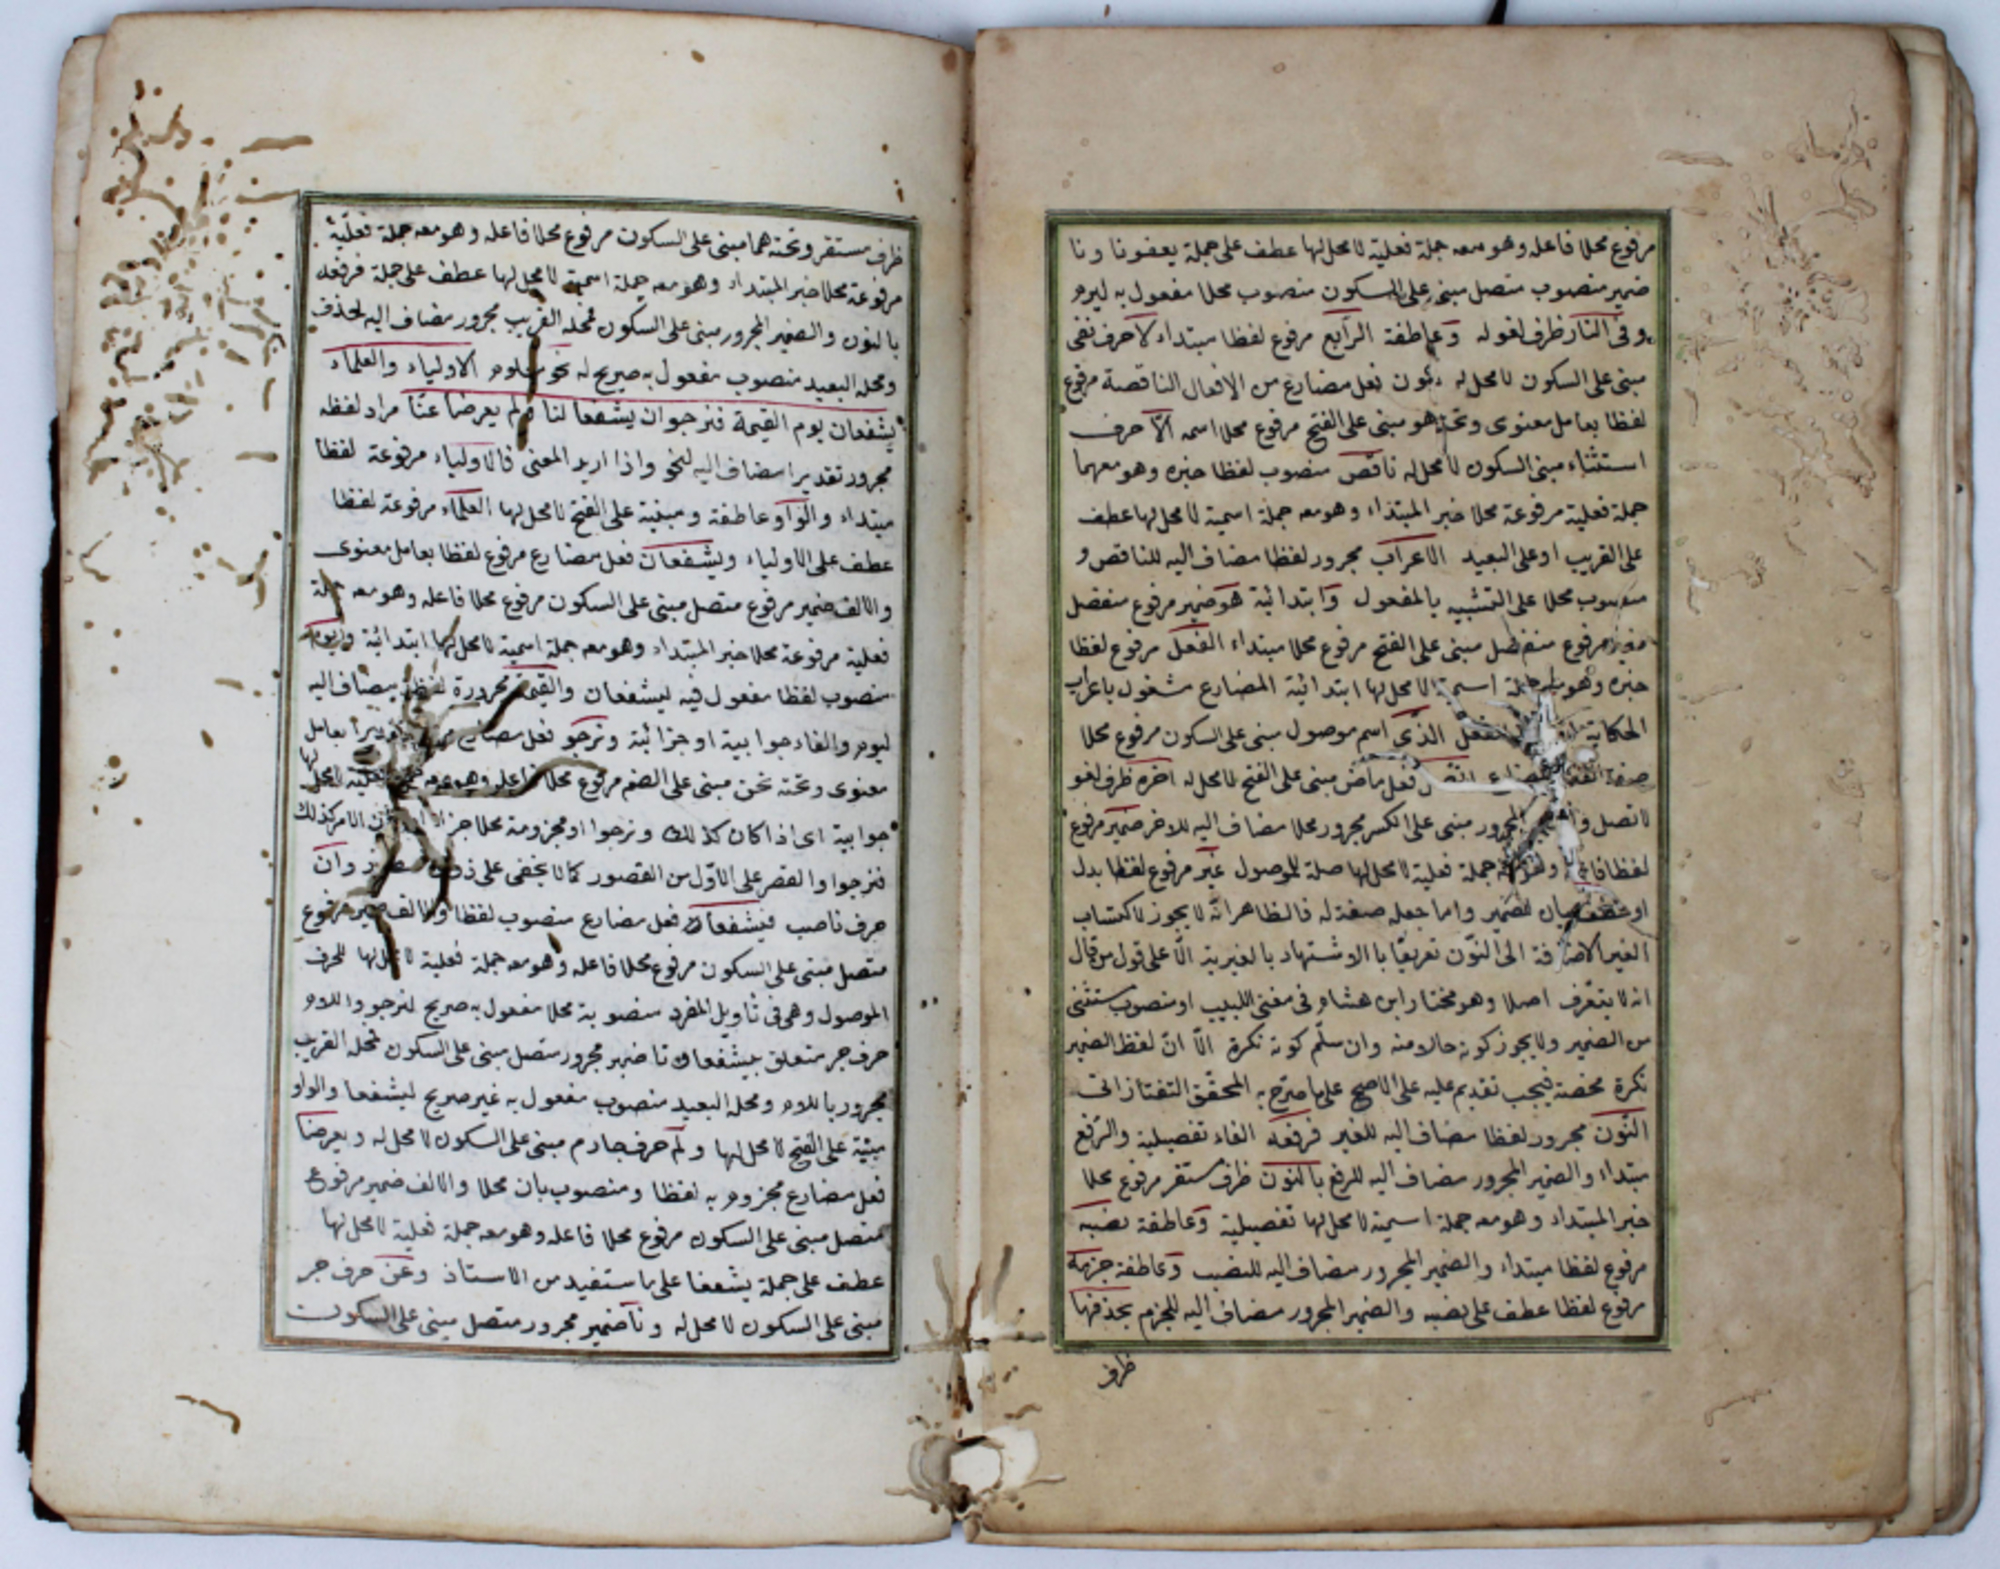 مرفوع محلا فاعله وهو معه جملة فعلية لا محل لها عطف على جملة يعفونا ونا
ضمير منصوب متصل مبنى على السكون منصوب محلا مفعول به ليرم
وفى النار ظرف لغو له وعاطفة الرابع مرفوع لفظا مبتداء لا حرف نفى
مبنى على السكون لا محل له يكون فعل مضارع من الافعال الناقصة مرفوع
لفظا بعامل معنوى وتحته هو مبنى على الفتح مرفوع محلا اسمه الّا حرف
استثناء مبنى السكون لا محل له ناقص منصوب لفظا خبره وهو معهما
جملة فعلية مرفوعة محلا خبر المبتداء وهو معه جملة اسمية لا محل لها عطف
على القريب او على البعيد الاعراب مجرور لفظا مضاف اليه للناقص و
منصوب محلا على التشبيه بالمفعول وابتدائية هو ضمير مرفوع منفصل
مرفوع منفصل مبنى على الفتح مرفوع محلا مبتداء الفعل مرفوع لفظا
خبره وهو معه جملة اسمية لا محل لها ابتدائية المضارع مشغول باعراب
الحكاية الفعل الذى اسم موصول مبنى على السكون مرفوع محلا
صفة فعل ماض مبنى على الفتح لا محل له اخره ظرف لغو
لاتصل المجرور مبنى على الكسر مجرور محلا مضاف اليه للاخر ضمير مرفوع
لفظا فاعله وهو معه جملة فعلية لا محل لها صلة للموصول غير مرفوع لفظا بدل
او عطف بيان للضمير واما جعله صفة له فالظاهر انّه لا يجوز لاكتساب
الغير الاضافة الى النّون تعريفا بالاشتهاد بالغيرية الّا على قول من قال
انه لا يتعرف اصلا وهو مختار ابن هشام فى مغنى اللبيب او منصوب مستثنى
من الضمير ولا يجوز كونه حالا منه وان سلّم كونه نكرة الّا انّ لفظ الضمير
نكرة محضة فيجب تقديمه عليه على الاصح على ما صرّح به المحقّق التفتازانى
النّون مجرور لفظا مضاف اليه للغير فرفعه الفاء تفصيلية والرّفع
مبتداء والضمير المجرور مضاف اليه للرفع بالنّون ظرف مستقر مرفوع محلا
خبر المبتداء وهو معه جملة اسمية لا محل لها تفصيلية وعاطفة نصبه
مرفوع لفظا مبتداء والضمير المجرور مضاف اليه للنصب وعاطفة جزمه
مرفوع لفظا عطف على نصبه والضمير المجرور مضاف اليه للجزم بحذفها
ظرف
ظرف مستقر وتحته هما مبنى على السكون مرفوع محلا فاعله وهو معه جملة فعليّة
مرفوعة محلا خبر المبتداء وهو معه جملة اسمية لا محل لها عطف على جملة فرفعه
بالنون والضمير المجرور مبنى على السكون فمحله القريب مجرور مضاف اليه لحذف
ومحله البعيد منصوب مفعول به صريح له نحو الاولياء والعلماء
يشفعان يوم القيمة فنرجوا ان يشفعا لنا ولم يعرضا عنّا مراد لفظه
مجرور تقديرا مضاف اليه لنحو واذا اريد المعنى فالاولياء مرفوعة لفظا
مبتداء والواو عاطفة ومبنية على الفتح لا محل لها العلماء مرفوعة لفظا
عطف على الاولياء ويشفعان فعل مضارع مرفوع لفظا بعامل معنوى
والالف ضمير مرفوع متصل مبنى على السكون مرفوع محلا فاعله وهو معه جملة
فعلية مرفوعة محلا خبر المبتداء وهو معه جملة اسمية لا محل لها ابتدائية ويوم
منصوب لفظا مفعول فيه ليشفعان والقيمة مجرورة لفظا مضاف اليه
ليوم والفاء جوابية او جزائية ونرجو فعل مضارع مرفوع تقديرا بعامل
معنوى وتحته نحن مبنى على الضم مرفوع محلا فاعله وهو معه جملة فعلية لا محل لها
جوابية اى اذا كان كذلك ونرجوا او مجزومة محلا جزاء ان كان الامر كذلك
فنرجوا والقصر على الاوّل من القصور كما لا يخفى على ذوى وان
حرف ناصب فيشفعان فعل مضارع منصوب لفظا والالف ضمير مرفوع
متصل مبنى على السكون مرفوع محلا فاعله وهو معه جملة فعلية لا محل لها للحرف
الموصول وهى فى تأويل المفرد منصوبة محلا مفعول به صريح لنرجو واللام
حرف جر متعلق بيشفعان نا ضمير مجرور متصل مبنى على السكون فمحله القريب
مجرور باللام ومحله البعيد منصوب مفعول به غير صريح ليشفعا والواو
مبنية على الفتح لا محل لها ولم حرف جازم مبنى على السكون لا محل له ويعرضا
فعل مضارع مجزوم به لفظا ومنصوب بان محلا والالف ضمير مرفوع
متصل مبنى على السكون مرفوع محلا فاعله وهو معه جملة فعلية لا محل لها
عطف على جملة يشفعا على ما ستفيد من الاستاذ وعن حرف جر
مبنى على السكون لا محل له ونا ضمير مجرور متصل مبنى على السكون